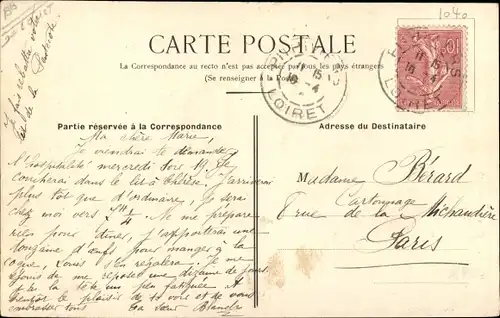 1040
CARTE POSTALE
La Correspondance au recto n'est pas acceptée par tous les pays étrangers
(Se renseigner à la Poste)
LOIRET
LOIRET
10
Partie réservée à la Correspondance
Adresse du Destinataire
Ma chère Marie,
Je viendrai te demander
l'hospitalité mercredi soir
coucherai dans le lit à Thérèse. J'arriverai
plus tôt que d'ordinaire, je serai
chez moi vers 4H 1/4. Ne me prépare
rien pour dîner, j'apporterai une
douzaine d'œufs pour manger à la
coque Louis s'en régalera. Je me
de me reposer une dizaine de jours
la tête un peu fatiguée. A
bientôt le plaisir de te voir et de vous
embrasser tous Ta sœur Blanche
Madame Bérard
Cartonnage
7 rue de la Michaudière
Paris